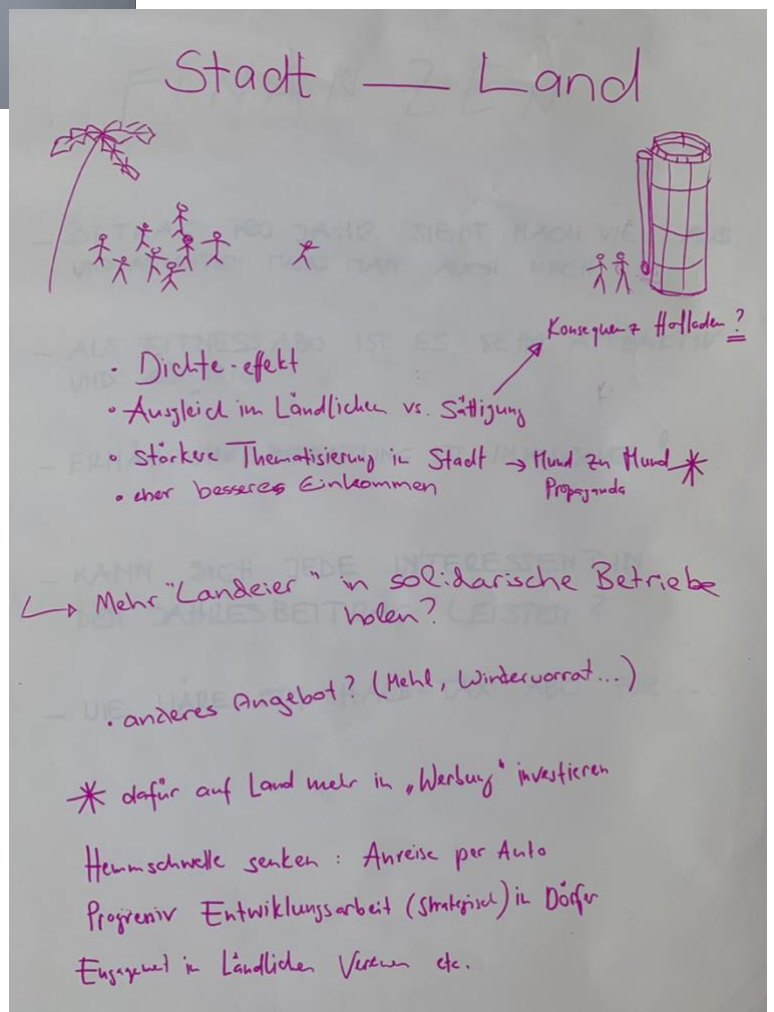 Stadt — Land
Konsequenz Hofladen?
• Dichte-effekt
• Ausgleich im Ländlichen vs. Sättigung
• stärkere Thematisierung in Stadt → Mund zu Mund *
Propaganda
• eher besseres Einkommen
↳ Mehr "Landeier" in solidarische Betriebe
holen?
• anderes Angebot? (Mehl, Wintervorrat...)
* dafür auf Land mehr in „Werbung" investieren
Hemmschwelle senken: Anreise per Auto
Entwiklungsarbeit (strategisch) in Dörfer
Engagement in Ländlichen Vereinen etc.